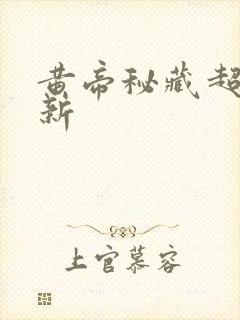 黄帝秘藏超
新
上官慕容